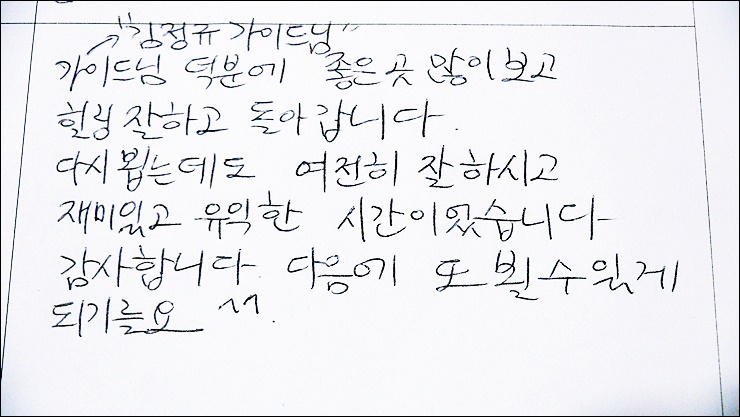 "김정규 가이드님"
가이드님 덕분에 좋은곳 많이보고
힐링 잘하고 돌아갑니다.
다시 뵙는데도 여전히 잘하시고
재미있고 유익한 시간이었습니다
감사합니다. 다음에 또 뵐수있게
되기를요 ^^.